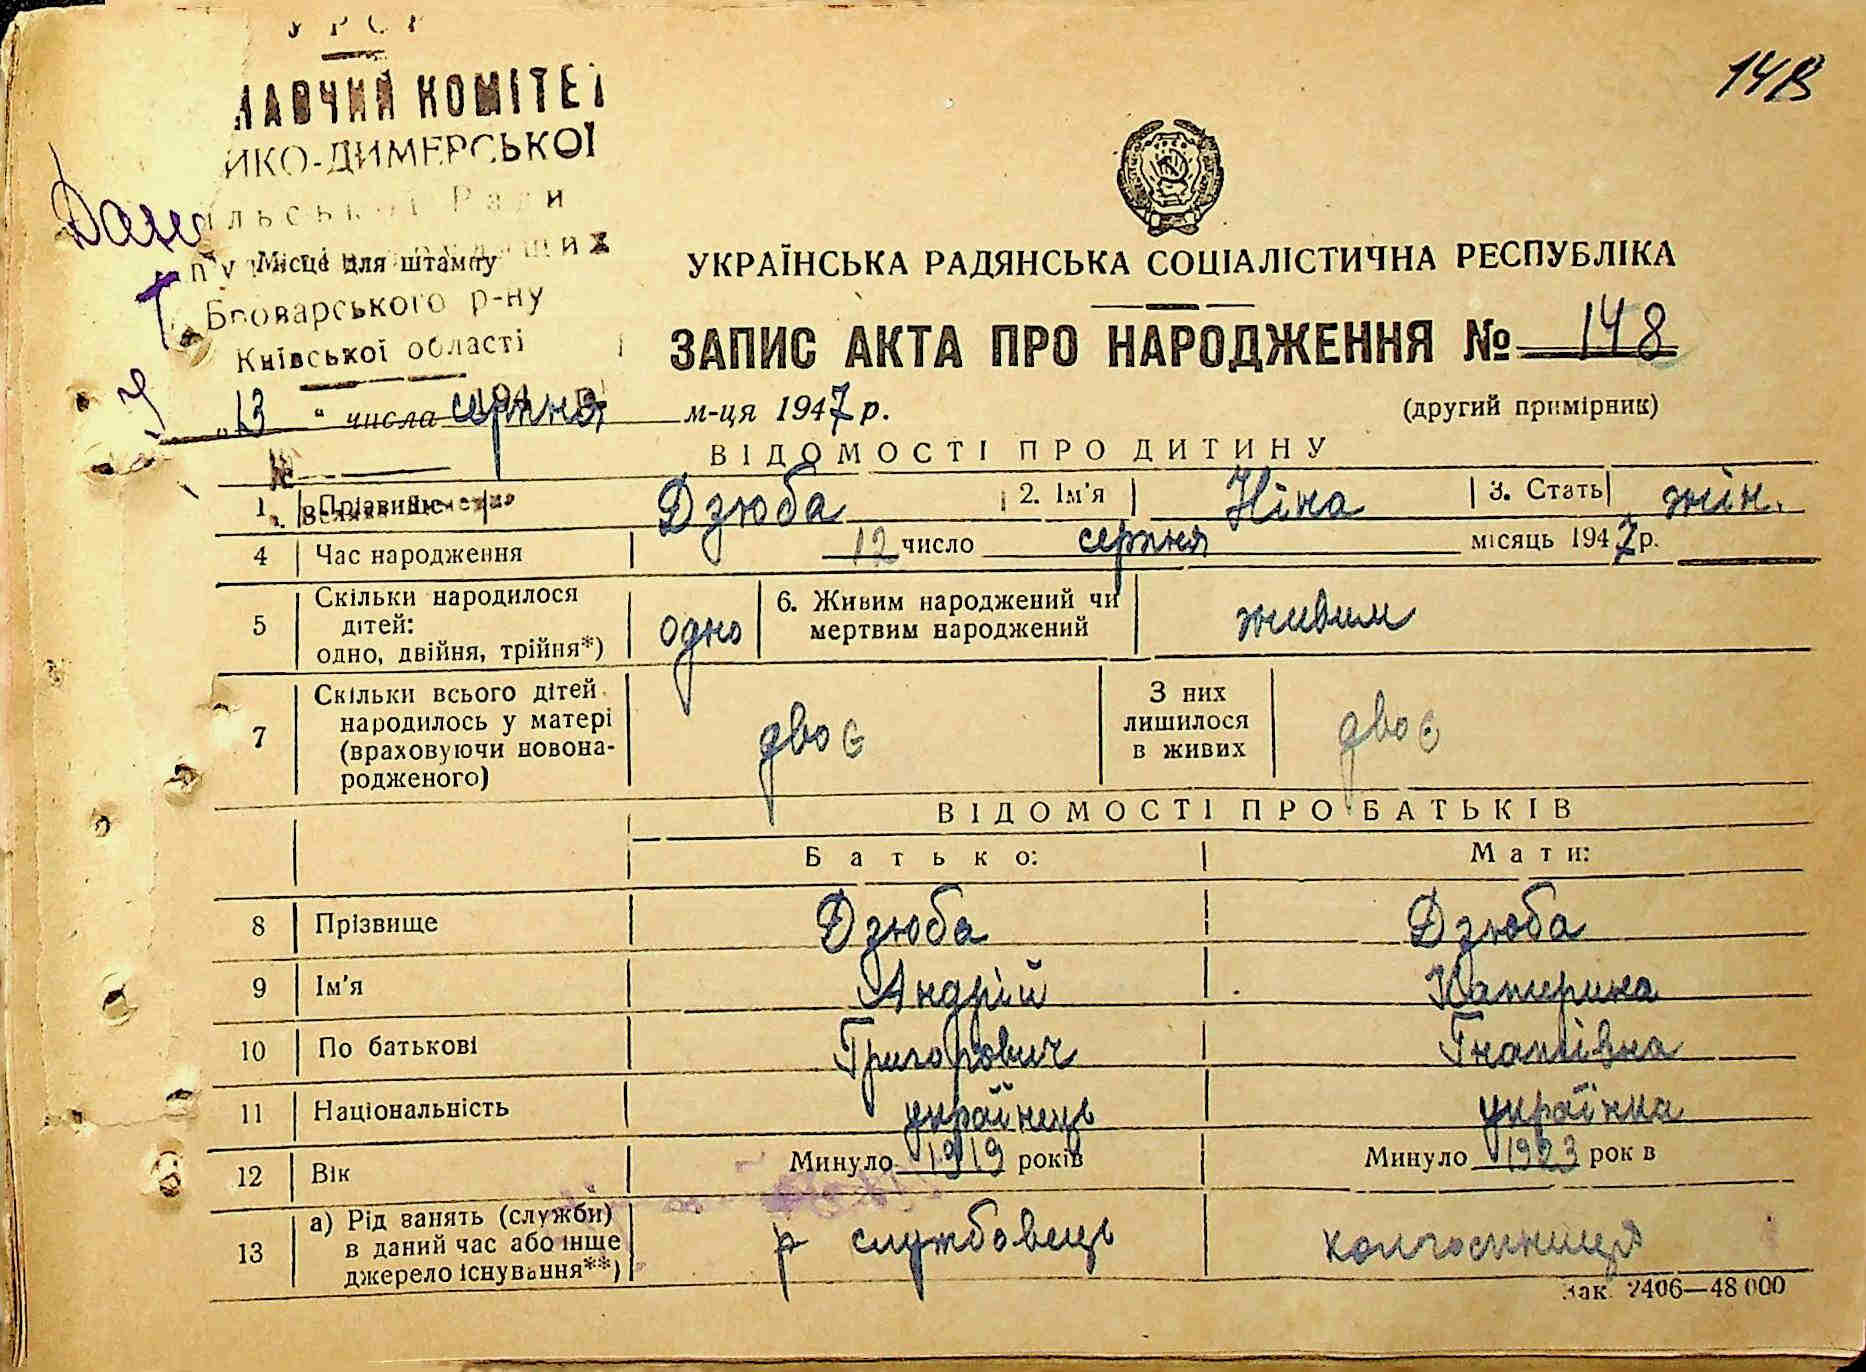 У Р С Р
148
КОМІТЕТ
ИКО-ДИМЕРСЬКОЇ
Ради
Місце для штампу
Броварського р-ну
Київської області
УКРАЇНСЬКА РАДЯНСЬКА СОЦІАЛІСТИЧНА РЕСПУБЛІКА
ЗАПИС АКТА ПРО НАРОДЖЕННЯ № 148
„13 “ числа серпня м-ця 1947 р.
(другий примірник)
ВІДОМОСТІ ПРО ДИТИНУ
1 Прізвище Дзюба 2. Ім'я Ніна 3. Стать жін.
4 Час народження 12 число серпня місяць 1947 р.
5 Скільки народилося дітей: одно, двійня, трійня*) одно 6. Живим народжений чи мертвим народжений живим
7 Скільки всього дітей народилось у матері (враховуючи новонародженого) двоє З них лишилося в живих двоє
ВІДОМОСТІ ПРО БАТЬКІВ
Батько: Мати:
8 Прізвище Дзюба Дзюба
9 Ім'я Андрій Катерина
10 По батькові Григорович Гнатівна
11 Національність українець українка
12 Вік Минуло 1919 років Минуло 1923 рок в
13 а) Рід занять (служби) в даний час або інше джерело існування**) службовець колгоспниця
Зак. 2406—48 000